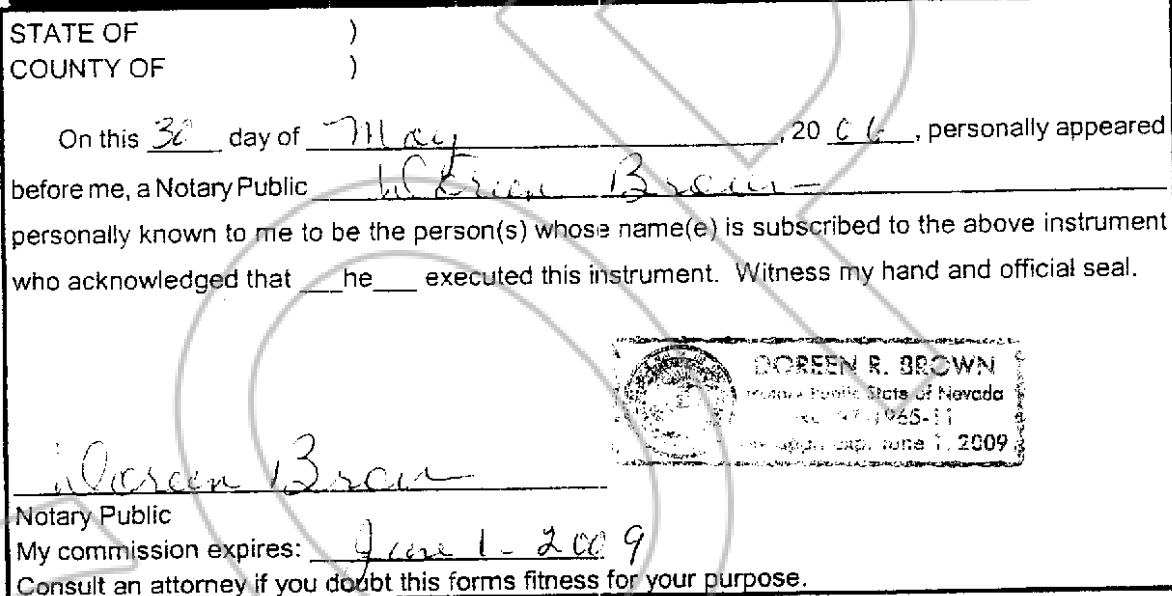 STATE OF )
COUNTY OF )
On this 30 day of May, 20 06, personally appeared
before me, a Notary Public Doreen Brown
personally known to me to be the person(s) whose name(e) is subscribed to the above instrument
who acknowledged that ___he___ executed this instrument. Witness my hand and official seal.
DOREEN R. BROWN
Notary Public State of Nevada
1965-11
exp. June 1, 2009
Doreen Brown
Notary Public
My commission expires: June 1 - 2009
Consult an attorney if you doubt this forms fitness for your purpose.